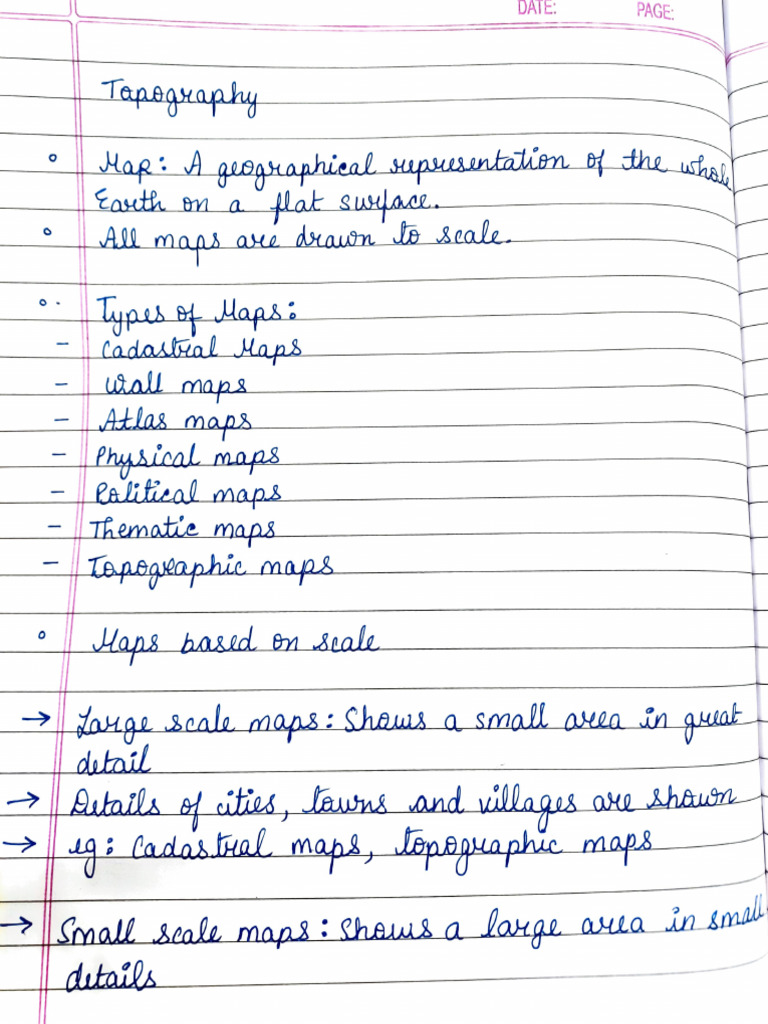 DATE: PAGE:
Topography
° Map: A geographical representation of the whole
Earth on a flat surface.
° All maps are drawn to scale.
° Types of Maps:
- Cadastral Maps
- Wall maps
- Atlas maps
- Physical maps
- Political maps
- Thematic maps
- Topographic maps
° Maps based on scale
→ Large scale maps: Shows a small area in great
detail
→ Details of cities, towns and villages are shown
→ eg: Cadastral maps, topographic maps
→ Small scale maps: Shows a large area in small
details